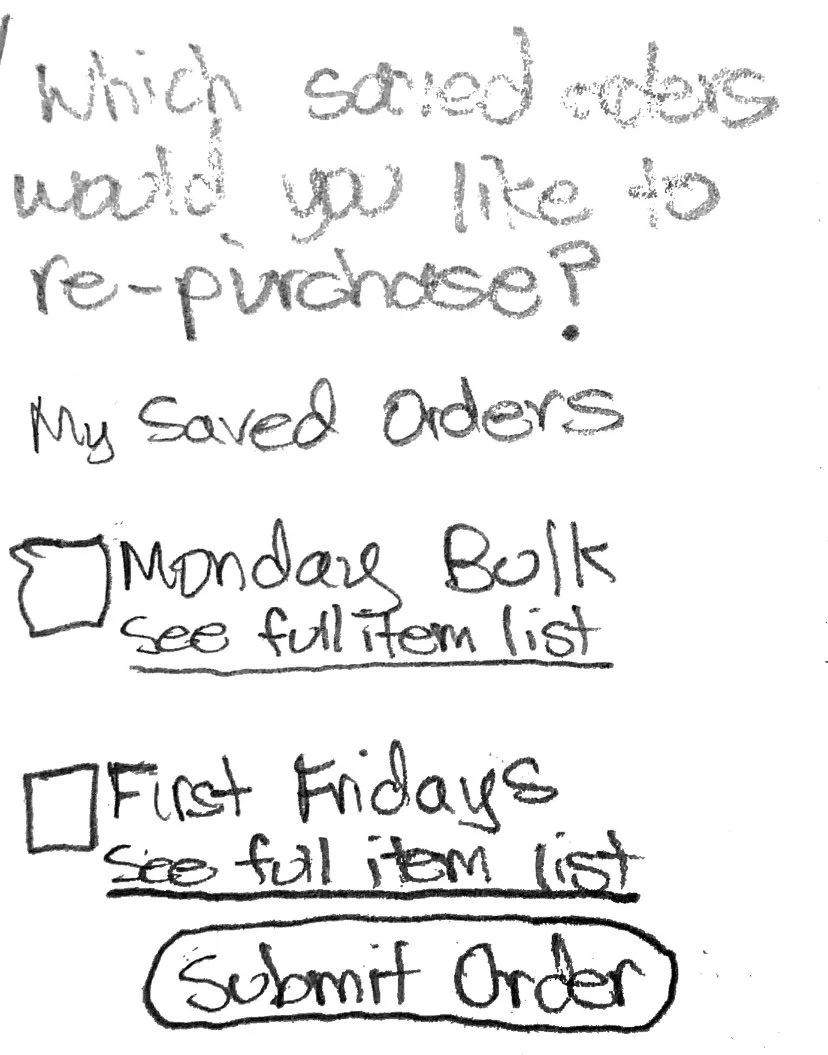 Which saved orders
would you like to
re-purchase?
My Saved Orders
Monday Bulk
See full item list
First Fridays
See full item list
Submit Order